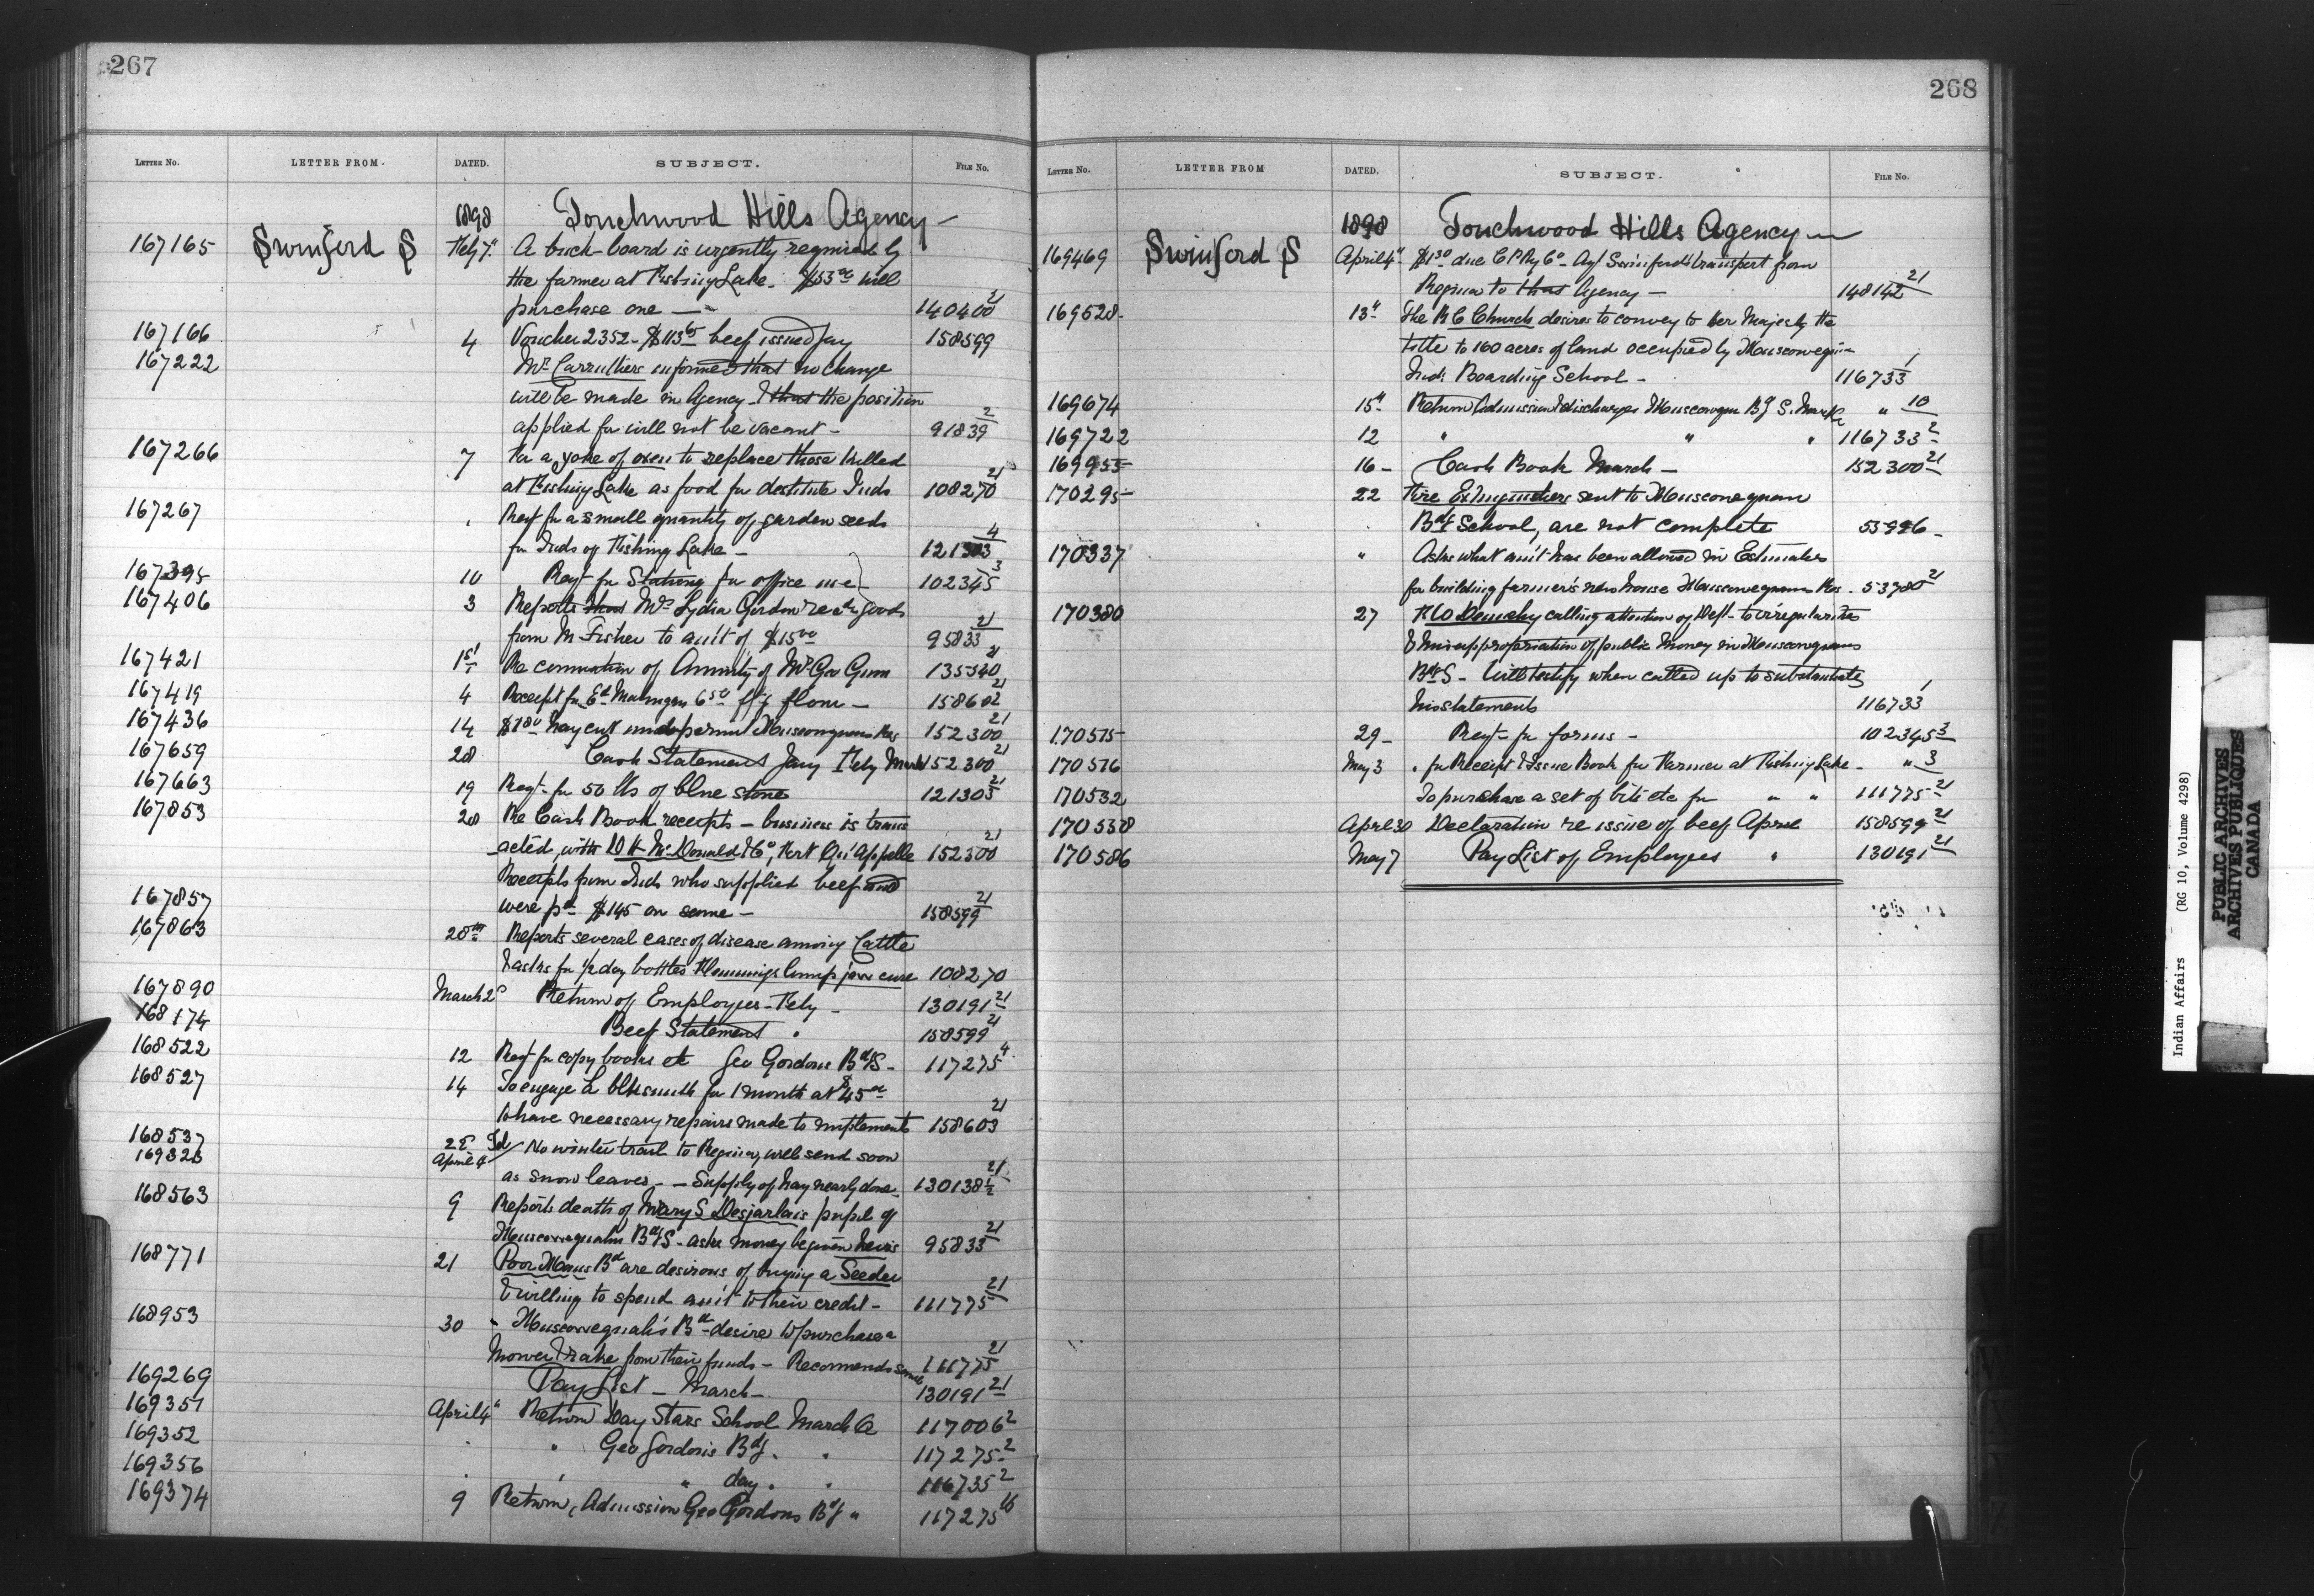 267
LETTER No. LETTER FROM. DATED. SUBJECT. FILE No.
1898 Touchwood Hills Agency
167165 Swinford S Feby 7" A buck-board is urgently required by
the farmer at Fishing Lake - $53 00 will
purchase one — 140400 21
167166 4 Voucher 2352 - $113 65 beef issued Jany 158599
167222 Mr Carruthers informed that no change
will be made in Agency & that the position
applied for will not be vacant - 91839 2
167266 7 For a yoke of oxen to replace those killed
at Fishing Lake as food for destitute Inds 108270 21
167267 " Reqt for a small quantity of garden seeds
for Inds of Fishing Lake - 121303 4
167395 10 Reqt for Stationy for office use - 102345 3
167406 3 Reports that Mrs Lydia Gordon goods
from Mr Fisher to amt of $15 00 95833 21
167421 1st Re commutation of Annuity of Mrs Geo Gunn 135540 21
167419 4 Receipt for flour - 158602 21
167436 14 $7 80 hay cut under permit Muscowequans Res 152300 21
167659 28 Cash Statement Jany Feby March 152300 21
167663 19 Reqt for 50 lbs of blue stone 121305 21
167853 28 Re Cash Book receipts - business is trans
acted with D H McDonald & Co, Fort Qu'Appelle 152300 21
167857 Receipts from Inds who supplied beef and
were pd $145 on same - 158599 21
167863 28th Reports several cases of disease among Cattle
& asks for 1/2 doz bottles Flemmings lump jaw cure 108270
167890 March 2d Return of Employees - Feby - 130191 21
168174 Beef Statement " 158599 21
168522 12 Reqt for copy books etc Geo Gordons Bdg S - 117275 4
168527 14 To engage a blksmith for 1 month at $45 00
to have necessary repairs made to implements 158603 21
168537 25 Tel No winter trail to Regina, will send soon
169323 April 4 as snow leaves - - Supply of hay nearly done - 130138 1/2 21
168563 9 Reports death of Mary S Desjarlais pupil of
Muscowequahn Bdg S - asks money be given heirs 95833 21
168771 21 Poor Mans Bd are desirous of buying a Seeder
& willing to spend amt to their credit - 111775 21
168953 30 - Muscowequah's Bd desire to purchase a
Mower & rake from their funds - Recommends same 111775 21
169269 Pay List - March - 130191 21
169351 April 4" Return Day Stars School March Qr 117006 2
169352 " " Geo Gordon's Bdg. " 117275 2
169356 " " " day. " 116735 2
169374 9 Return, Admission Geo Gordons Bdg " 117275 16
268
LETTER No. LETTER FROM DATED. SUBJECT. FILE No.
1898 Touchwood Hills Agency
169469 Swinford S April 4" $1 30 due C P Ry Co - Agt Swinford's transport from
Regina to that Agency - 148142 21
169528 - 13" The R C Church desires to convey to Her Majesty the
title to 160 acres of land occupied by Muscowequan
Ind: Boarding School - 116733 1
169674 15" Return Admission & discharges Muscowequan Bdg S. March " 10
169722 12 " " " 116733 2
169955 16 - Cash Book March - 152300 21
170295 22 Fire Extinguishers sent to Muscowequan
Bdg School, are not complete 55996 -
170337 " Asks what amt has been allowed in Estimates
for building farmer's new house Muscowequan Res. 53780 21
170380 27 calling attention of Dept - to irregularities
& misappropriation of public money in Muscowequans
Bdg S - Will testify when called up to substantiate
his statements 116733 1
170515 29 - Reqt - for forms - 102345 3
170516 May 3 " for Receipt & Issue Book for Farmer at Fishing Lake - " 3
170532 To purchase a set of bits etc for " " 111775 21
170538 April 30 Declaration re issue of beef April 158599 21
170586 May 7 Pay List of Employees " 130191 21
Indian Affairs (RG 10, Volume 4298)
PUBLIC ARCHIVES
ARCHIVES PUBLIQUES
CANADA